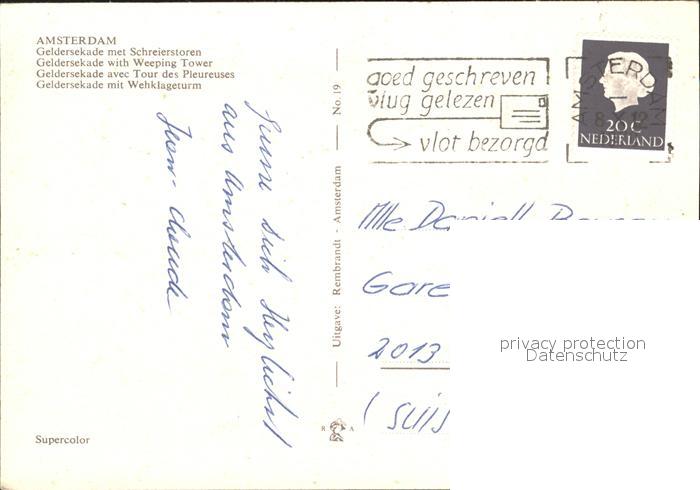 AMSTERDAM
Geldersekade met Schreierstoren
Geldersekade with Weeping Tower
Geldersekade avec Tour des Pleureuses
Geldersekade mit Wehklageturm
sich Herzlichst
aus Amsterdam
Jean-Claude
Supercolor
No. 19
Uitgave: Rembrandt - Amsterdam
R A
goed geschreven
vlug gelezen
vlot bezorgd
AMSTERDAM
20 C
NEDERLAND
Mlle Daniell
Gare
2013
(SUIS
privacy protection
Datenschutz